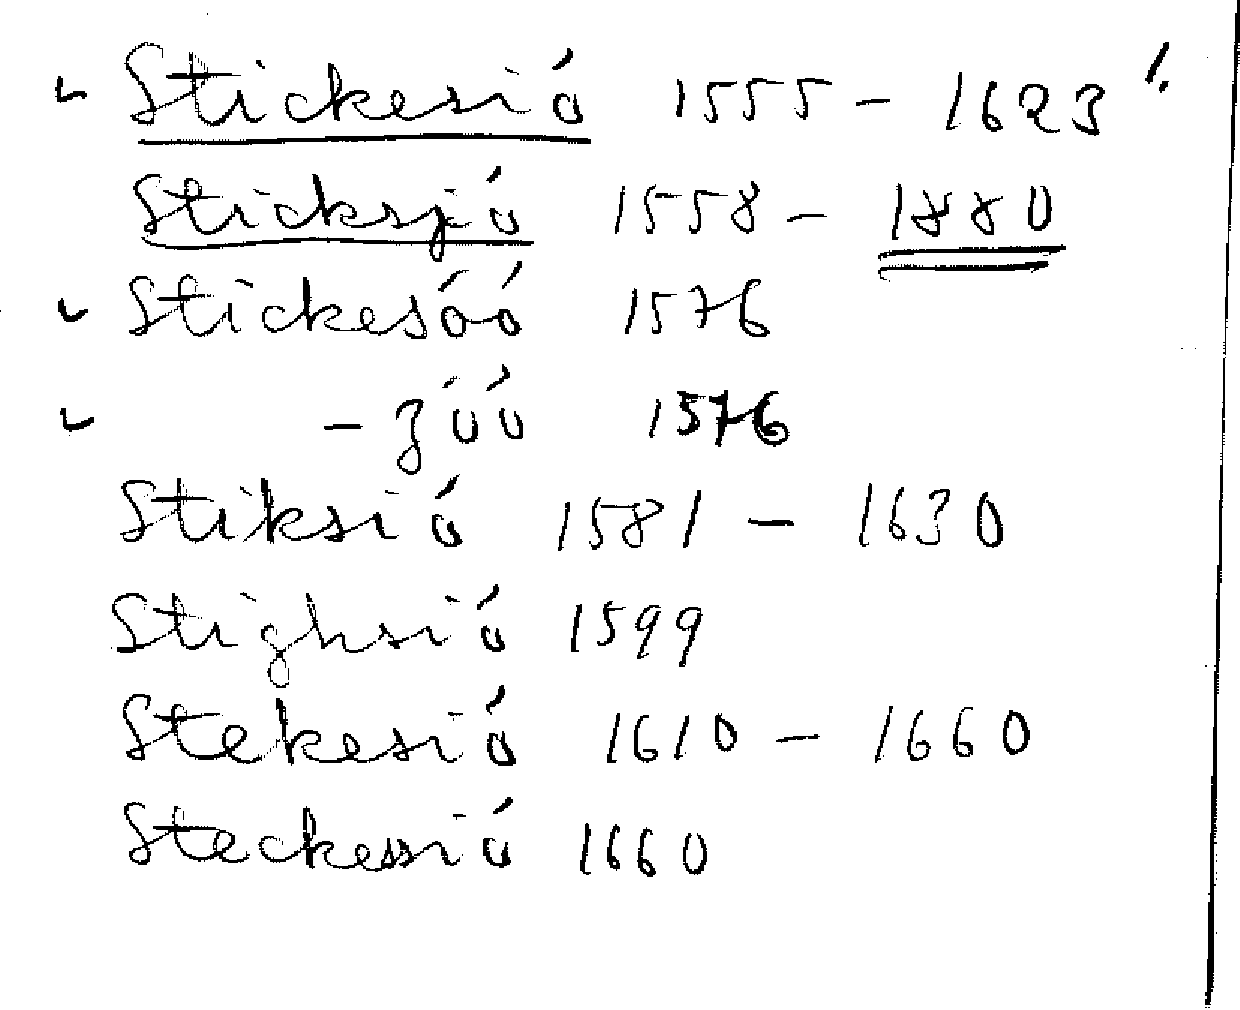 Stickesiö 1555 – 1623 !
Sticksjö 1558 – 1880
Stickesöö 1576
– zöö 1576
Stiksiö 1581 – 1630
Stighsiö 1599
Stekesiö 1610 – 1660
Steckessiö 1660